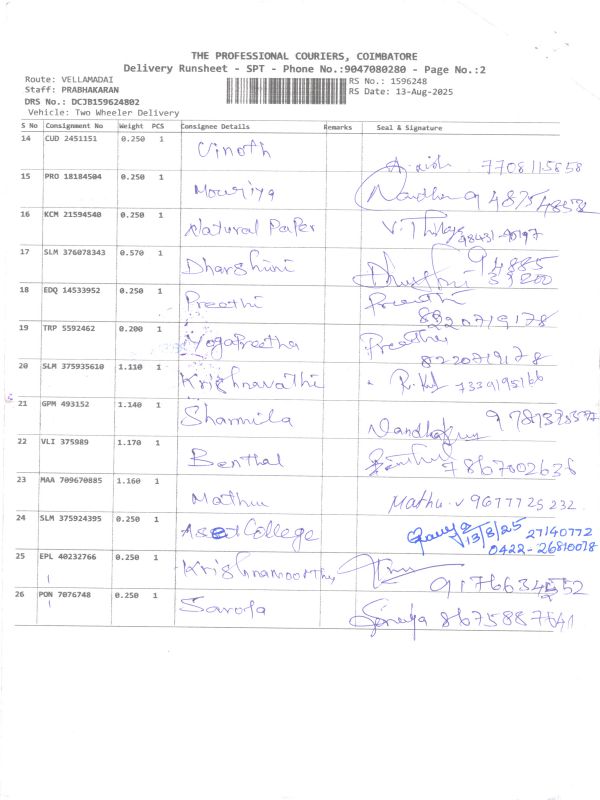 THE PROFESSIONAL COURIERS, COIMBATORE
Delivery Runsheet - SPT - Phone No.:9047080280 - Page No.:2
Route: VELLAMADAI
Staff: PRABHAKARAN
DRS No.: DCJB159624802
Vehicle: Two Wheeler Delivery
RS No.: 1596248
RS Date: 13-Aug-2025
S No Consignment No Weight PCS Consignee Details Remarks Seal & Signature
14 CUD 2451151 0.250 1 Vinoth 7708115858
15 PRO 18184504 0.250 1 Mouriya
16 KCM 21594540 0.250 1 Natural Paper 98431-90197
17 SLM 376078343 0.570 1 Dharshini
18 EDQ 14533952 0.250 1 Preethi Preethi 8220719178
19 TRP 5592462 0.200 1 YogaPreetha 8220719178
20 SLM 375935610 1.110 1 Krishnavathi 7339195166
21 GPM 493152 1.140 1 Sharmila
22 VLI 375989 1.170 1 Benthal 7867002636
23 MAA 709670885 1.160 1 Mathu Mathu.v 9677725232
24 SLM 375924395 0.250 1 College 13/8/25 27140772
0422-26810078
25 EPL 40232766 0.250 1 Krishnamoorthy
26 PON 7076748 0.250 1 Saroja 8675887641